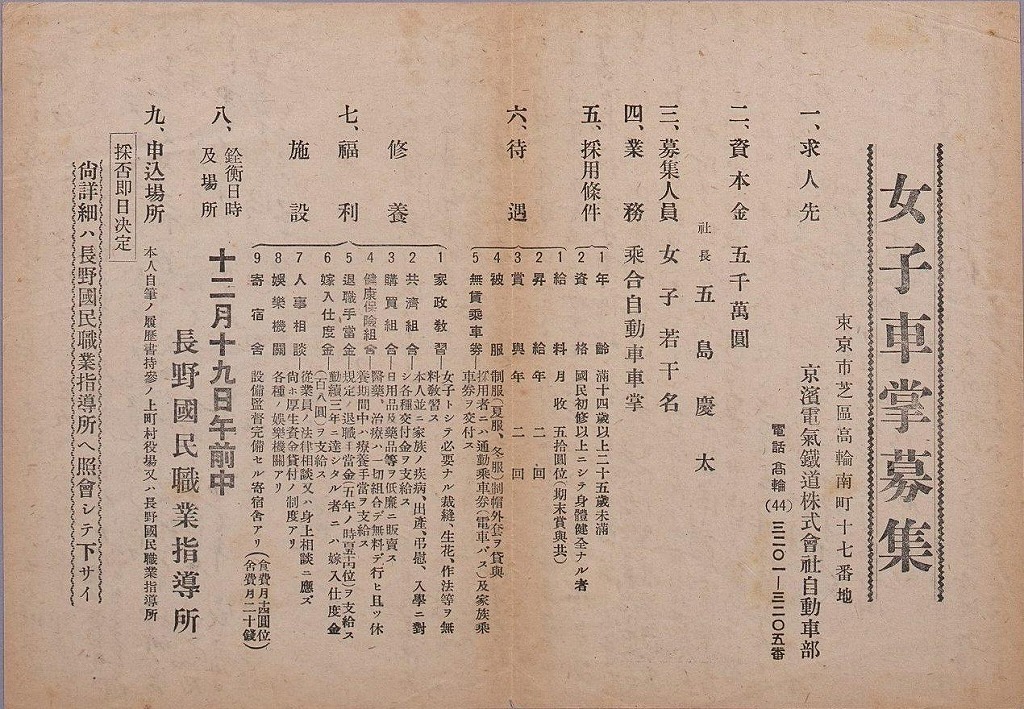 女子車掌募集
一、求人先
東京市芝區高輪南町十七番地
京濱電氣鐵道株式會社自動車部
電話高輪(44)三二〇一―三二〇五番
社長 五島慶太
二、資本金 五千萬圓
三、募集人員 女子若干名
四、業務 乘合自動車車掌
五、採用條件
1年齡 滿十四歲以上二十五歲未滿
2資格 國民初修以上ニシテ身體健全ナル者
六、待遇
1給料 月收五拾圓位(期末賞與共)
2昇給 年二回
3賞與 年二回
4被服 制服(夏服、冬服)制帽外套ヲ貸與
5無賃乘車券 採用者ニハ通勤乘車券(電車バス)及家族乘
車券ヲ交付ス
七、福利施設修養
1家政敎習―女子トシテ必要ナル裁縫、生花、作法等ヲ無
料敎習ス
2共濟組合―本人並ニ家族ノ疾病、出產、弔慰、入學ニ對
シ各種交付金ヲ支給ス
3購買組合―日用品及藥品等ヲ低廉ニ販賣ス
4健康保險組合―醫藥、治療ハ一切組合デ無料デ行ヒ且ツ休
養期間中ハ療養手當ヲ支給ス
5退職手當金―規定ノ退職手當金(五年ノ時 位)ヲ支給ス
6嫁入仕度金―勤續三年ニ達シタル者ニハ嫁入仕度金
(百八圓)ヲ支給ス
7人事相談 從業員ノ法律相談又ハ身上相談ニ應ズ
尙ホ厚生資金貸付ノ制度アリ
8娛樂機關 各種ノ娛樂機關アリ
9寄宿舍 設備監督完備セル寄宿舍アリ(食費月 圓位
舍費月二十錢)
八、銓衡日時及場所
十二月十九日午前中
長野國民職業指導所
九、申込場所 本人自筆ノ履歷書持參ノ上町村役場又ハ長野國民職業指導所
採否卽日決定
尙詳細ハ長野國民職業指導所ヘ照會シテ下サイ